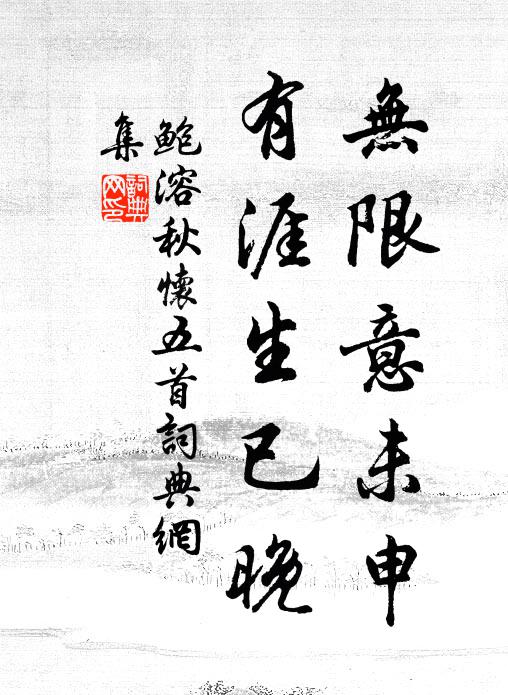 無限意未申
有涯生已晚
鮑溶秋懷五首詞典網
集
詞典
网印